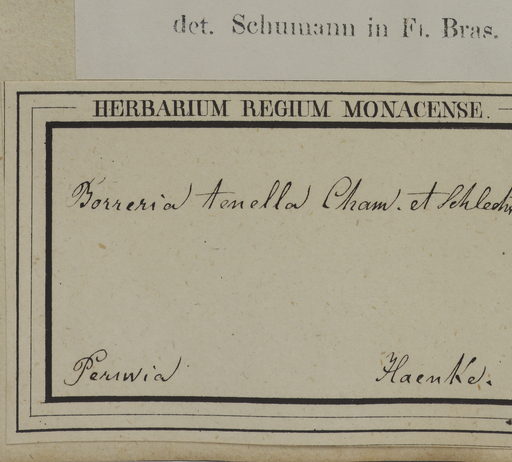 det. Schumann in Fl. Bras.
HERBARIUM REGIUM MONACENSE.
Borreria tenella Cham. et Schlecht
Peruvia Haenke.